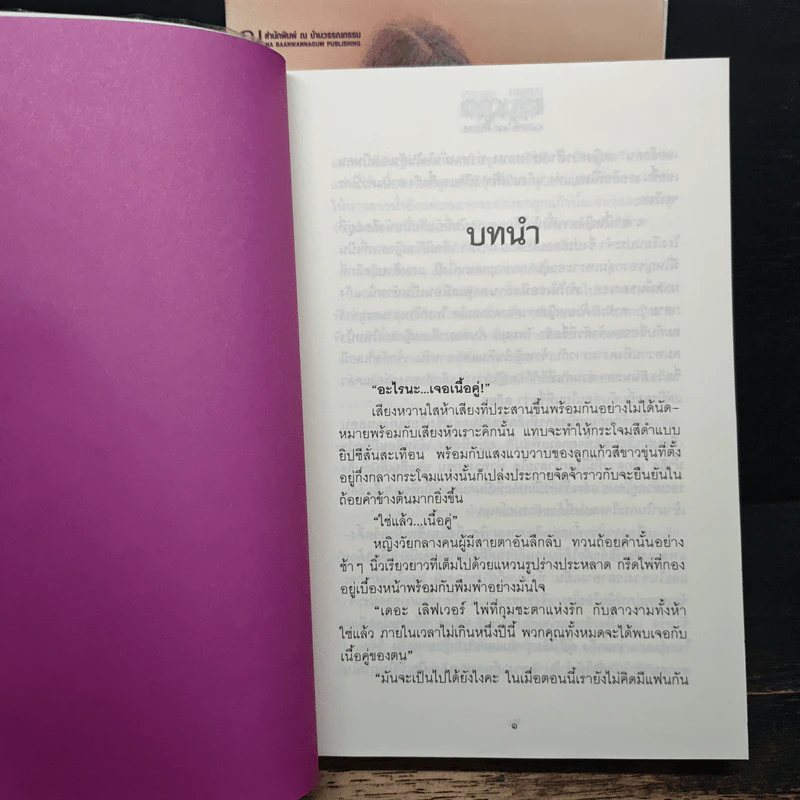 สำนักพิมพ์ ณ บ้านวรรณกรรม
NA BAANWANNAGUM PUBLISHING
บทนำ
“อะไรนะ...เจอเนื้อคู่!”
เสียงหวานใสห้าเสียงที่ประสานขึ้นพร้อมกันอย่างไม่ได้นัด-
หมายพร้อมกับเสียงหัวเราะคิกนั้น แทบจะทำให้กระโจมสีดำแบบ
ยิปซีสั่นสะเทือน พร้อมกับแสงแวบวาบของลูกแก้วสีขาวขุ่นที่ตั้ง
อยู่กึ่งกลางกระโจมแห่งนั้นก็เปล่งประกายจัดจ้าราวกับจะยืนยันใน
ถ้อยคำข้างต้นมากยิ่งขึ้น
“ใช่แล้ว...เนื้อคู่”
หญิงวัยกลางคนผู้มีสายตาอันลึกลับ ทวนถ้อยคำนั้นอย่าง
ช้าๆ นิ้วเรียวยาวที่เต็มไปด้วยแหวนรูปร่างประหลาด กรีดไพ่ที่กอง
อยู่เบื้องหน้าพร้อมกับพึมพำอย่างมั่นใจ
“เดอะ เลิฟเวอร์ ไพ่ที่กุมชะตาแห่งรัก กับสาวงามทั้งห้า
ใช่แล้ว ภายในเวลาไม่เกินหนึ่งปีนี้ พวกคุณทั้งหมดจะได้พบเจอกับ
เนื้อคู่ของตน”
“มันจะเป็นไปได้ยังไงคะ ในเมื่อตอนนี้เรายังไม่คิดมีแฟนกัน
๑